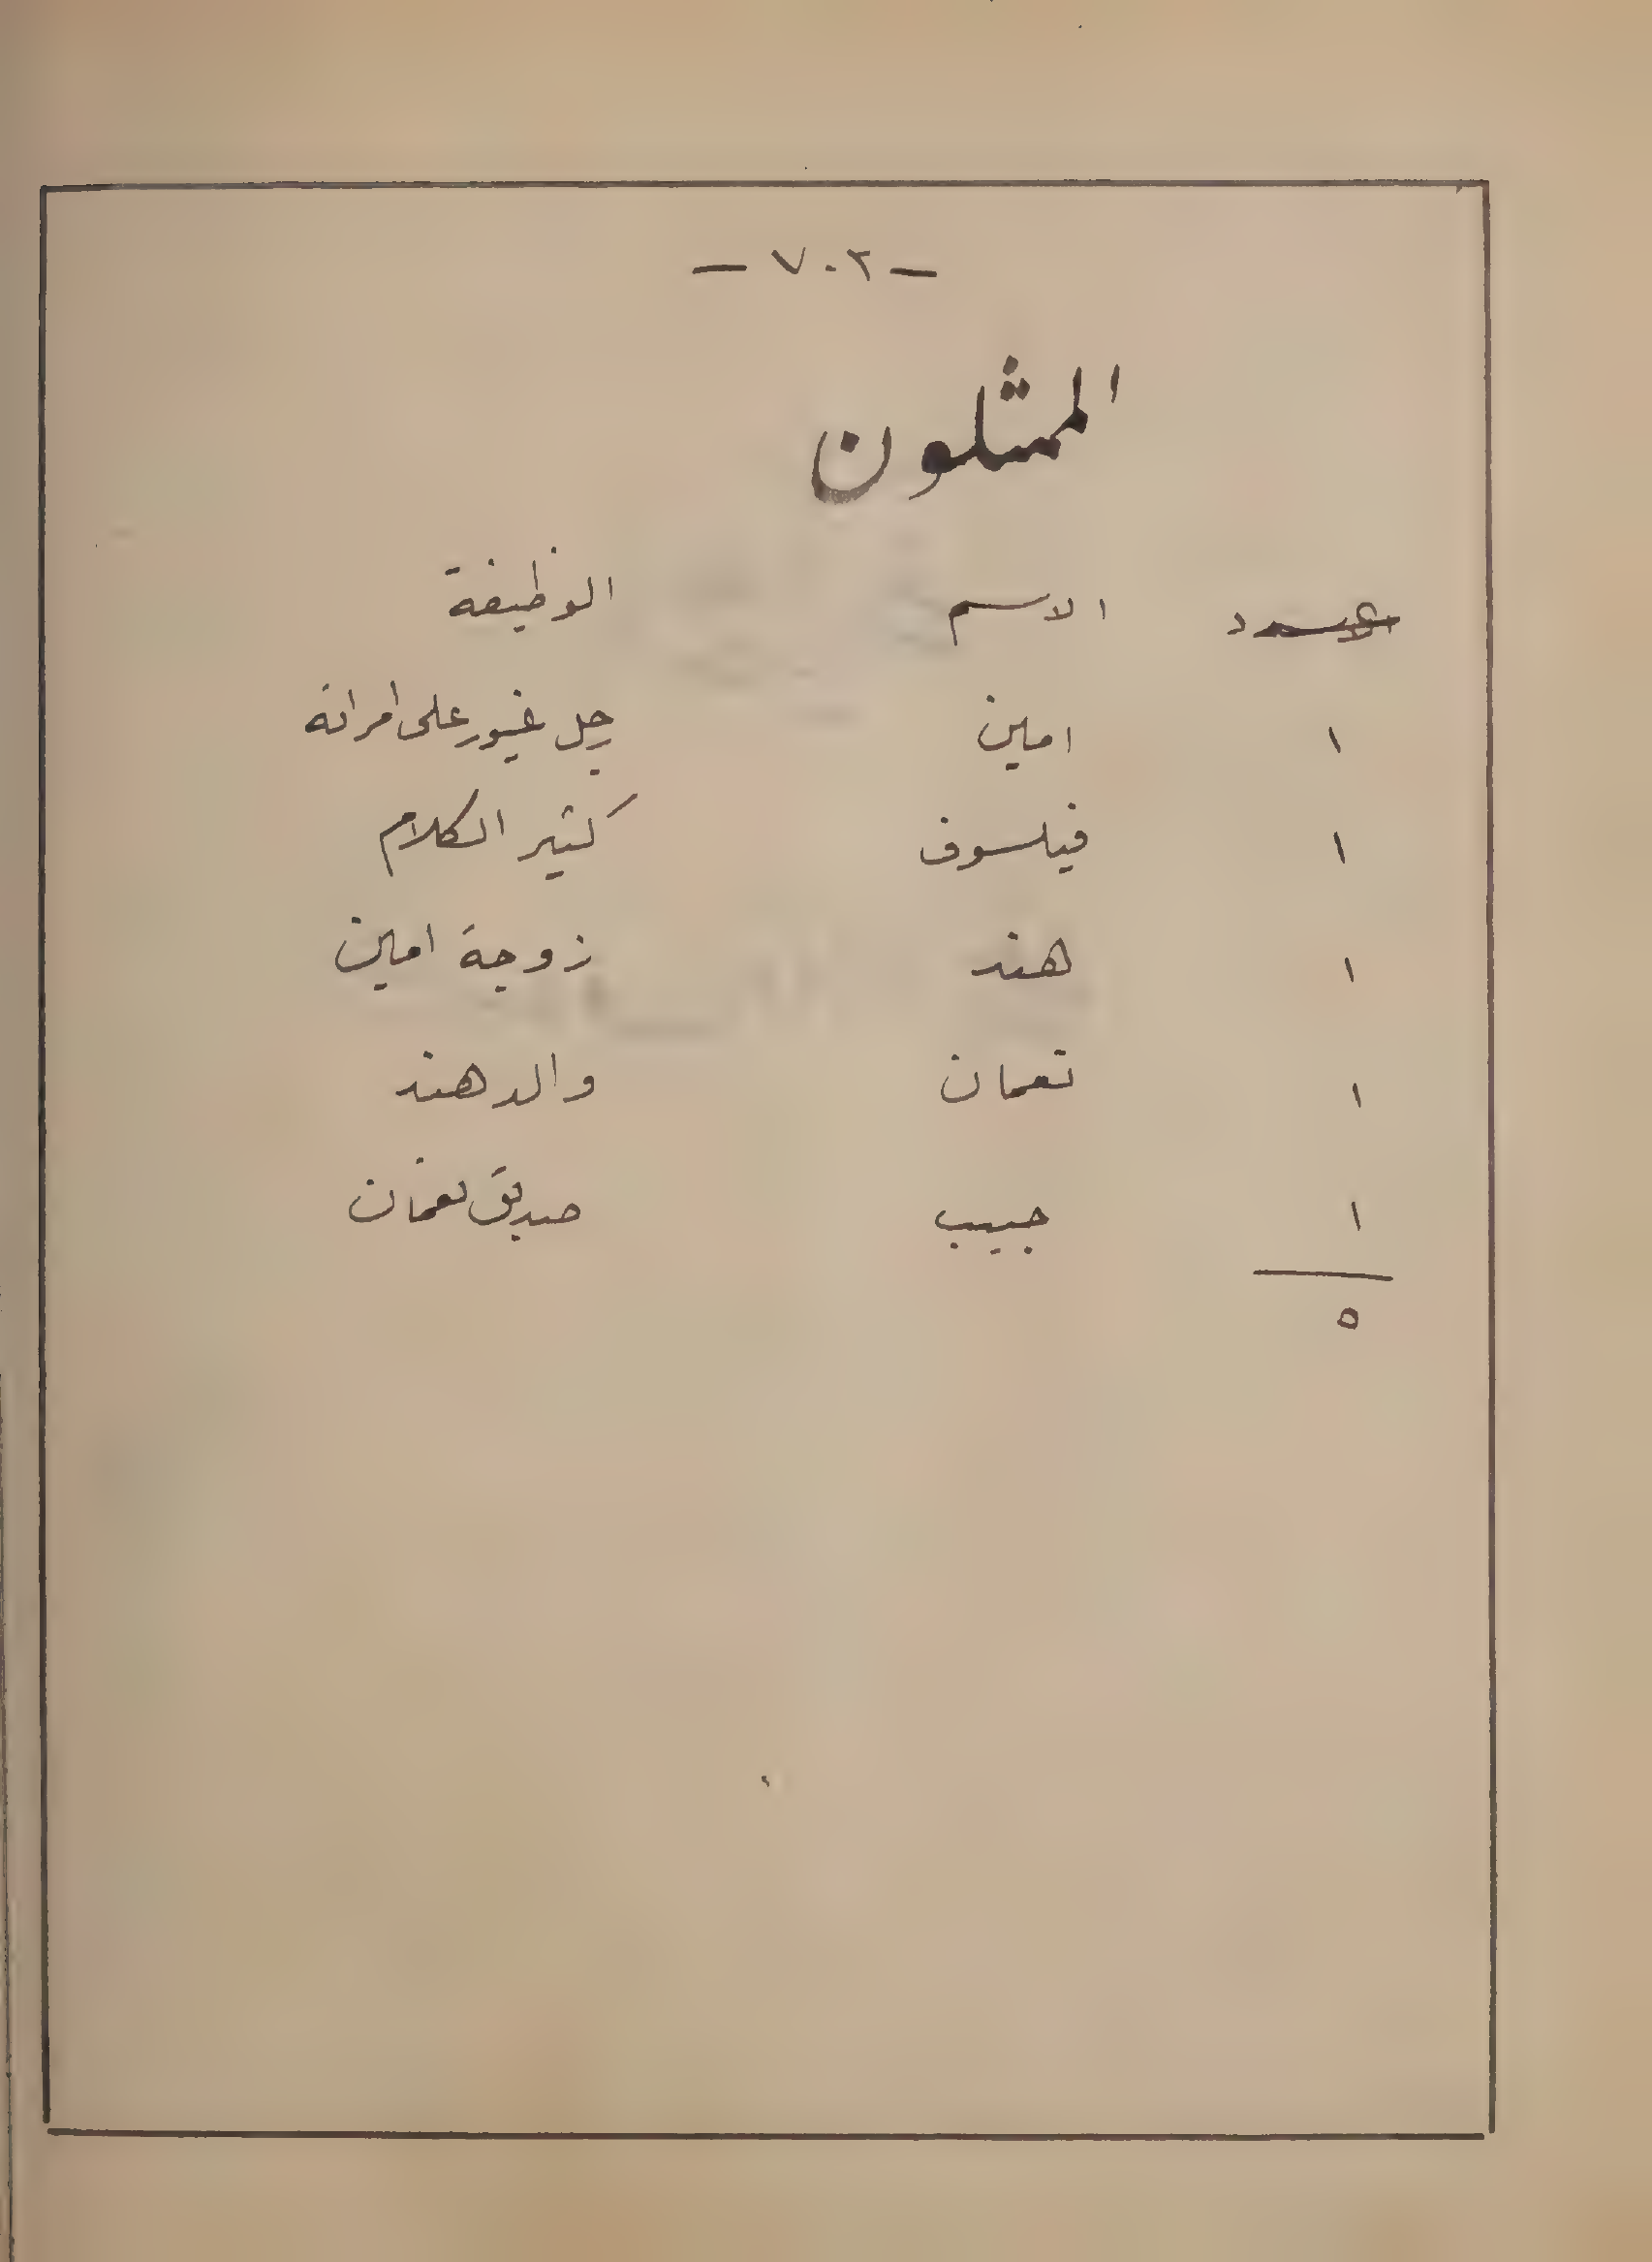 — ٧٠٢ —
الممثلون
عدد الاسم الوظيفة
١ امين رجل غيور على امراته
١ فيلسوف كثير الكلام
١ هند زوجة امين
١ نعمان والد هند
١ حبيب صديق نعمان
٥